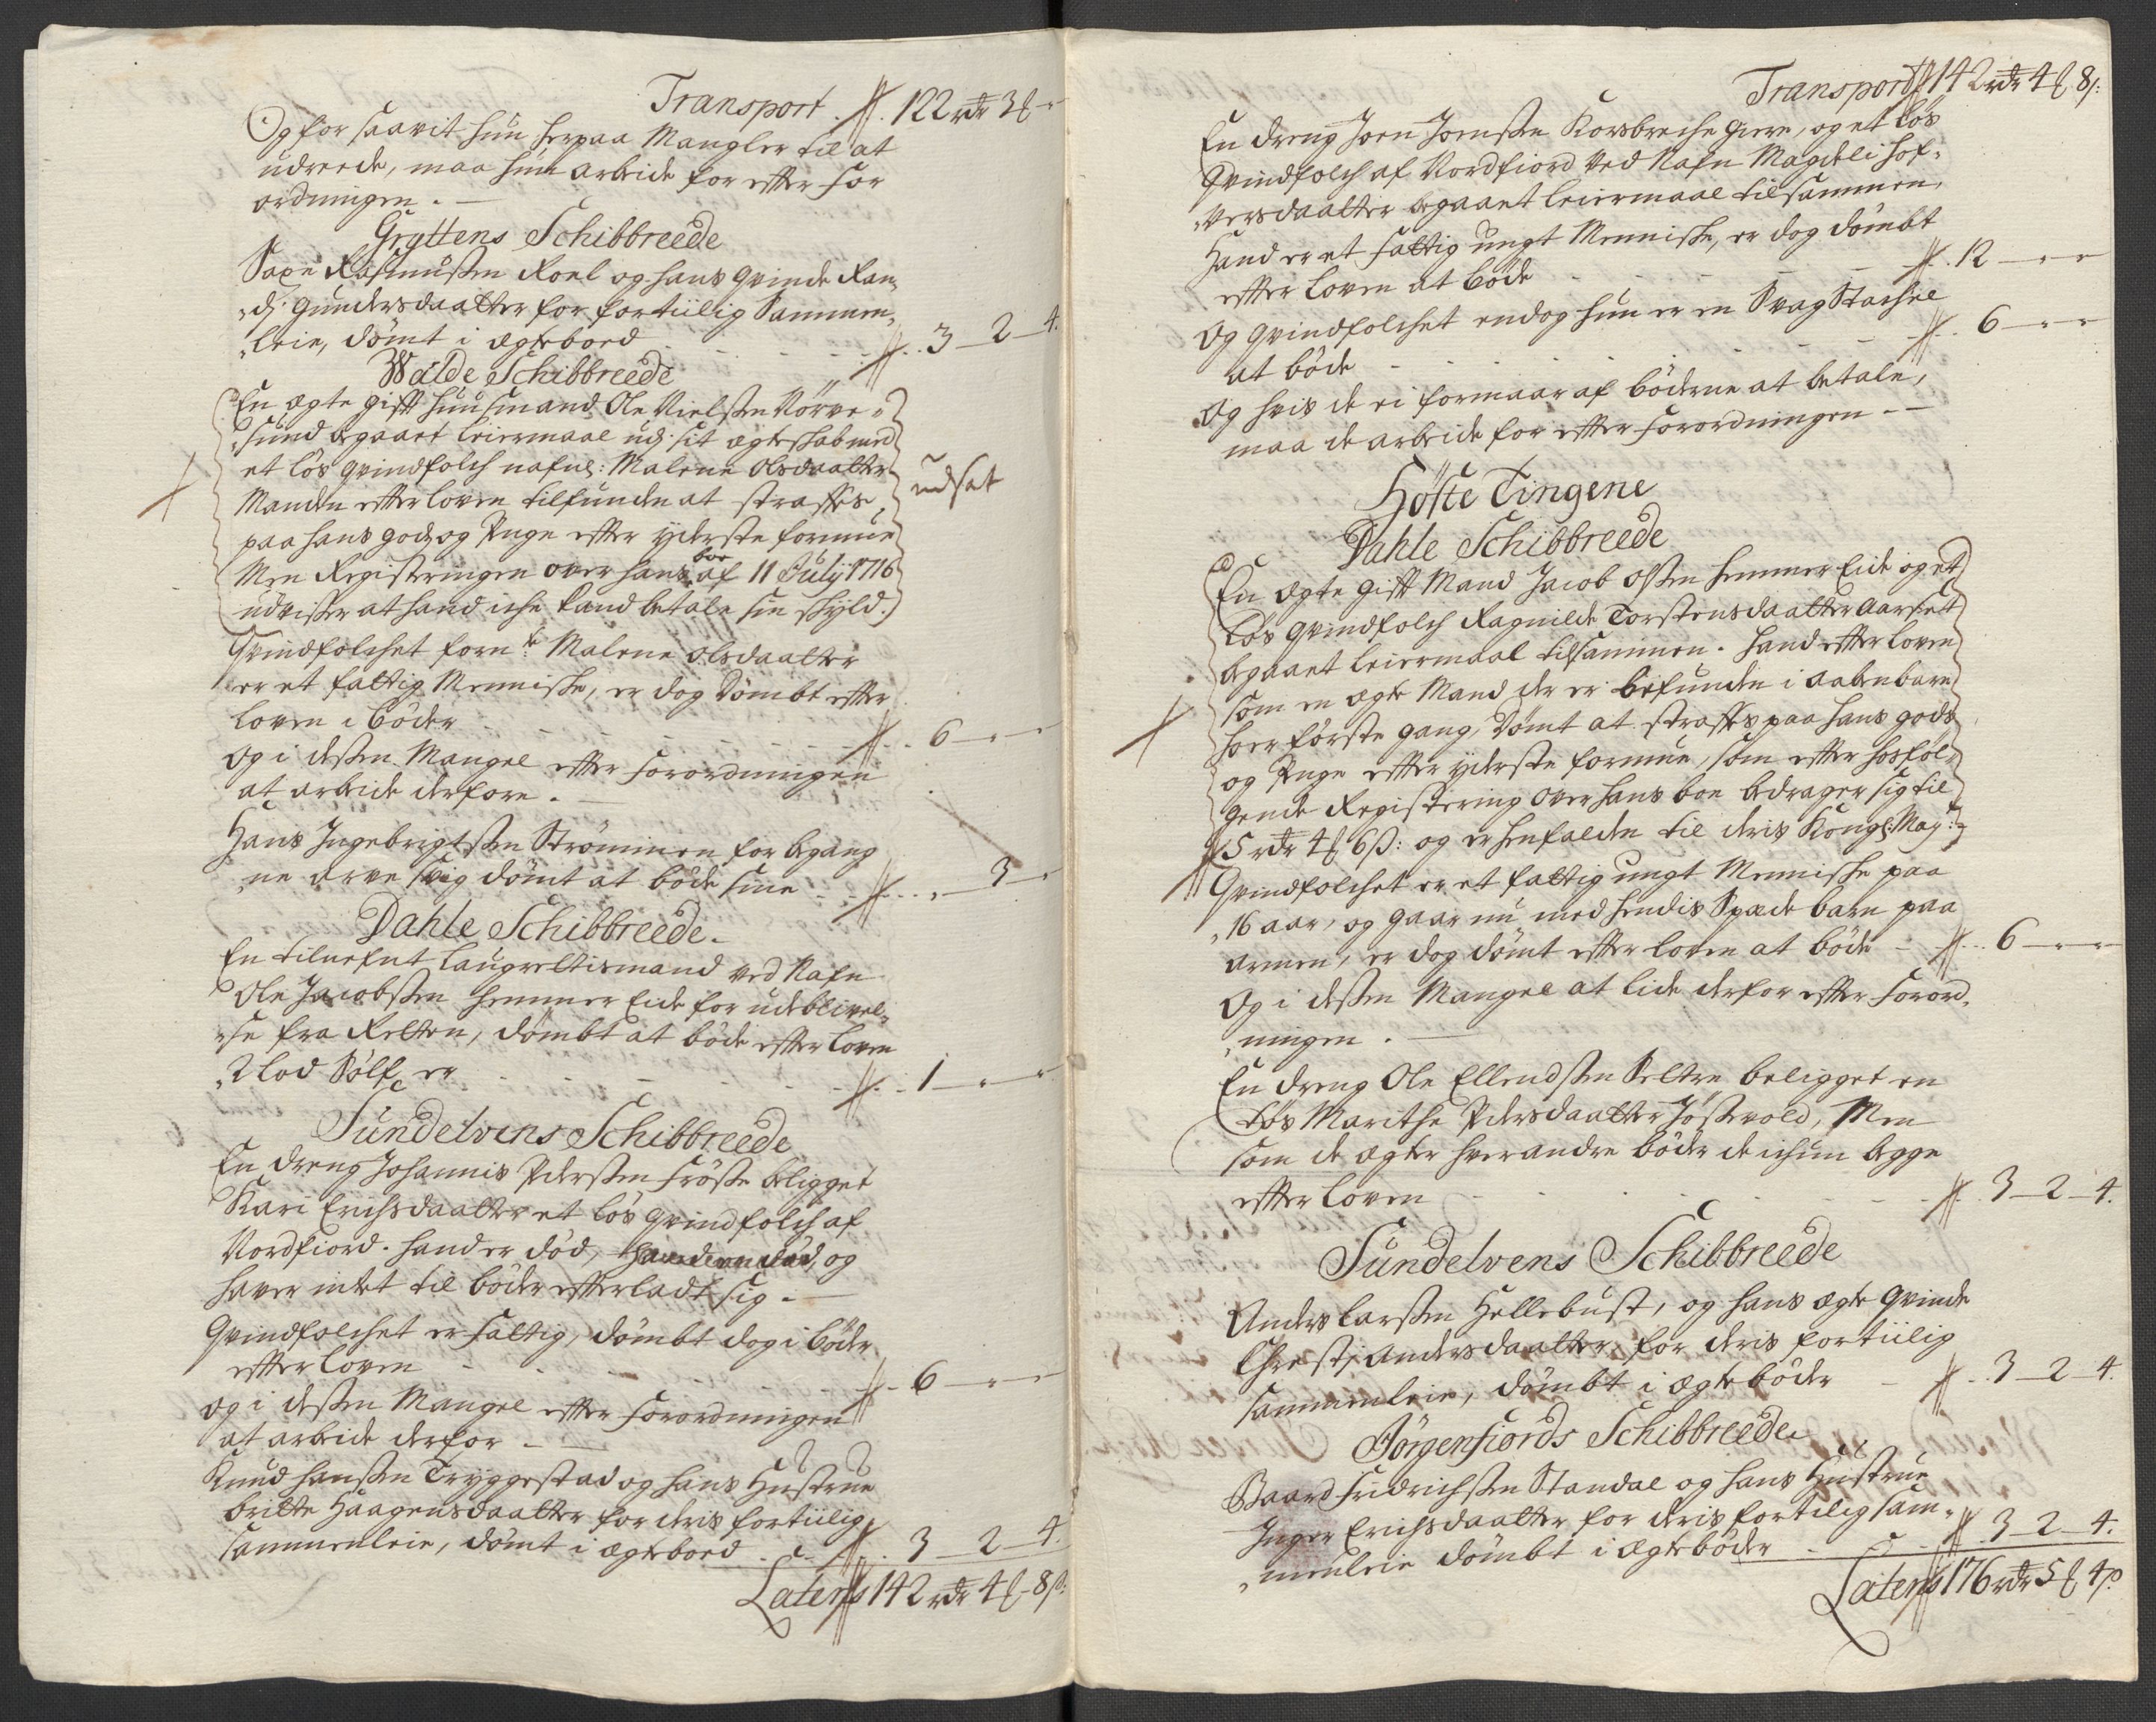 Transport ⸗ 122 rdr 3 ₰ -
Og for saavit hun herpaa Mangler til at
udreede, maa hun arbeide for efter For
ordningen. —
Gryttens Schibbreede
Saxe Rasmussen Roel og hans qvinde Ran¸
¸dj Gundersdaatter for fortiilig Sammen¸
¸leie, dømt i ægtebood - - - - 3 - 2 - 4.
Walde Schibbreede
En ægte gift huusmand Ole Nielssen Nørve¸
¸sund begaaet leiermaal udj sit ægteskab med
et løs qvindfolch nafnl: Malene Olsdaatter
Manden efter loven tilfunden at straffes,
udsat
paa hans gods og Penge efter yderste formue
Men Registeringen over hans boe af 11 July 1716
udviiser at hand iche kand betale sin skyld.
Qvindfolchet fornte Malene Olsdaatter
er et fattig Menniske, er dog dømbt efter
loven i bøder - - - - 6 - " - "
og i dessen Mangel efter Forordningen
at arbeide derfore. —
Hans Ingebrigtssen Strømmen for begang
¸ne arve svig dømt at bøde sine - - " - 3 - "
Dahle Schibbreede.
En tilnefnt laugrettismand ved Nafn
Ole Jacobssen Hemmer Eide for udeblivel¸
¸se fra Retten, dømbt at bøde efter loven
¸2 lod Sølf er - - - - 1 - " - "
Sundelvens Schibbreede
En dreng Johannis Pderssen Frøsse beligget
Kari Erichsdaatter et løs qvindfolch af
Nordfiord. hand er død, og
haver intet til bøder efterladt sig. —
Qvindfolchet er fattig, dømbt dog i bøder
efter loven - - - - 6 - " - "
og i dessen Mangel efter Forordningen
at arbeide derfor - —
Knud Hanssen Tryggestad og hans Hustrue
Britte Haagensdaatter for deris fortiilig
sammenleie, dømt i ægtebood - - 3 - 2 - 4.
Lateris 142 rdr 4 ₰ - 8 s:
Transport 142 rdr 4 ₰ 8 s:
En dreng Joen Joenssen Korsbreche giere, og et løs
Qvindfolch af Nordfiord ved Nafn Magdeli Hof¸
¸versdaatter begaaet leiermaal tilsammen,
Hand er et fattig ungt Menniske, er dog dømbt
efter loven at bøde - - - - 12 - " - "
Og qvindfolchet endog hun er en Svag Stachel
at bøde - - - - 6 - " - "
Og hvis de ei formaar af bøderne at betale,
maa de arbeide for efter Forordningen - —
Høste Tingene
Dahle Schibbreede
En ægte gift Mand Jacob Olssen Hemmer Eide og et
løs qvindfolch Ragnilde Torstensdaatter Aarset
begaaet leiermaal tilsammen. hand efter loven
som en ægte Mand der er befunden i aabenbare
hoer første gang, dømt at straffes paa hans gods
og Penge efter yderste formue, som efter hosføl¸
gende Registering over hans boe bedrager sig til
15 rdr 4 ₰ 6 s: og er henfalden til deris Kongl: May:t
Qvindfolchet er et fattig ungt Menniske paa
¸16 aar, og gaar nu med hendis Spæde barn paa
armen, er dog dømt efter loven at bøde - - 6 - " - "
Og i dessen Mangel at lide derfor efter Forord¸
¸ningen. —
En dreng Ole Ellendssen Seltre beligget en
løs Marithe Pdersdaatter Jøssevold, Men
som de ægter hverandre bøder de ichun begge
efter loven - - - - 3 - 2 - 4.
Sundelvens Schibbreede
Anders Larssen Hellebust, og hans ægte qvinde
Chresti Andersdaatter for deris fortiilig
sammenleie, dømbt i ægtebøder - - 3 - 2 - 4.
Jørgenfiords Schibbreede.
Baard Fridrichssen Standal og hans Hustrue
Inger Erichsdaatter for deris fortilig sam¸
¸menleie dømbt i ægtebøder - - 3 - 2 - 4.
Lateris 176 rdr 5 ₰ 4 s